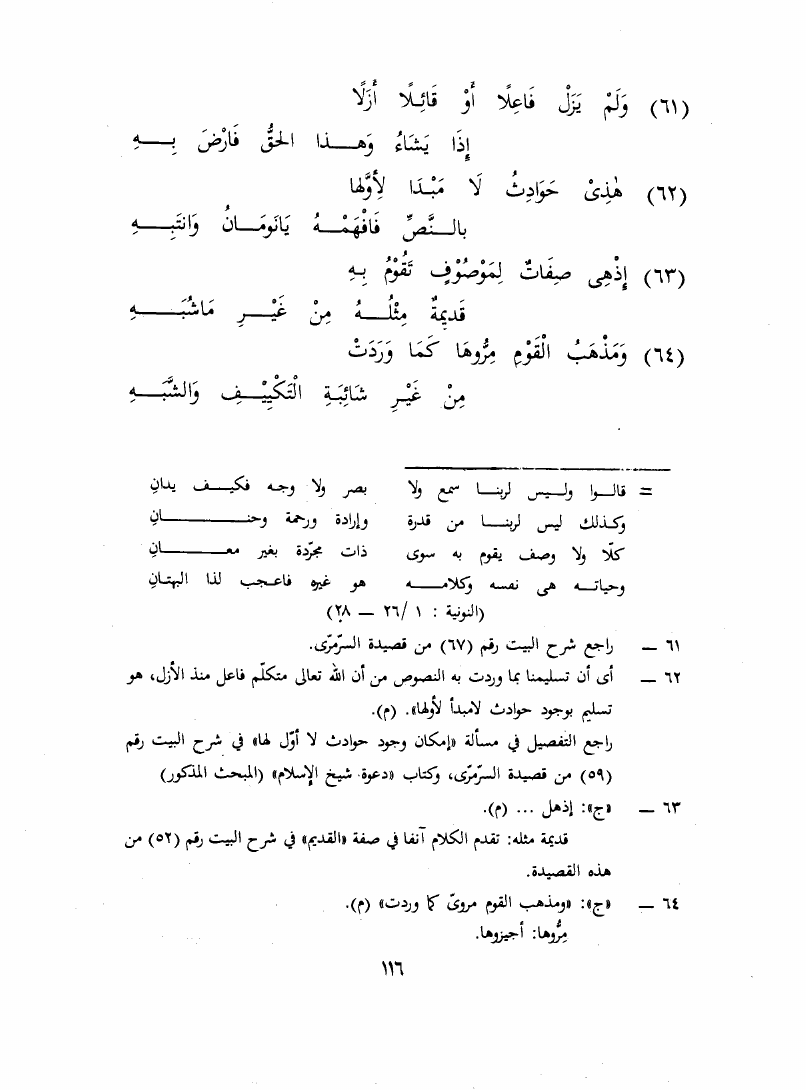 (٦١) وَلَمْ يَزَلْ فَاعِلًا أَوْ قَائِلًا أَزَلًا
إِذَا يَشَاءُ وَهـــذا الحَقُّ فَارْضَ بِـــهِ
(٦٢) هٰذِىْ حَوَادِثُ لَا مَبْدَا لأِوَّلِهَا
بالــنَّصِّ فَافْهَمْــهُ يَانَومَــانُ وَانْتَبِــهِ
(٦٣) إِذْهِى صِفَاتٌ لِمَوْصُوْفٍ تَقُوْمُ بِهِ
قَدِيمَةٌ مِثْلُــهُ مِنْ غَيْــرِ مَاشُبَــهِ
(٦٤) وَمَذْهَبُ الْقَوْمِ مِرُّوهَا كَمَا وَرَدَتْ
مِنْ غَيْرِ شَائِبَةِ الْتَكْيِيْــفِ وَالشَّبَــهِ
= قالــوا ولــيس لربنــا سمع ولا بصر ولا وجه فكيــف يدانِ
وكذلك ليس لربنــا من قدرة وإرادة ورحمة وحنــانِ
كلّا ولا وصف يقوم به سوى ذات مجرّدة بغير معــانِ
وحياتــه هى نفسه وكلامــه هو غيره فاعجب لذا البهتانِ
(النونية : ١ /٢٦ — ٢٨)
٦١ — راجع شرح البيت رقم (٦٧) من قصيدة السرّمرّى.
٦٢ — أى أن تسليمنا بما وردت به النصوص من أن الله تعالى متكلّم فاعل منذ الأزل، هو
تسليم بوجود حوادث لامبدأ لأولها». (م).
راجع التفصيل في مسألة «إمكان وجود حوادث لا أوّل لها» في شرح البيت رقم
(٥٩) من قصيدة السرّمرّى، وكتاب «دعوة شيخ الإسلام» (المبحث المذكور)
٦٣ — «ج»: إذهل ... (م).
قديمة مثله: تقدم الكلام آنفا في صفة «القديم» في شرح البيت رقم (٥٢) من
هذه القصيدة.
٦٤ — «ج»: «ومذهب القوم مروىّ كما وردت» (م).
مِرُّوها: أجيزوها.
١١٦